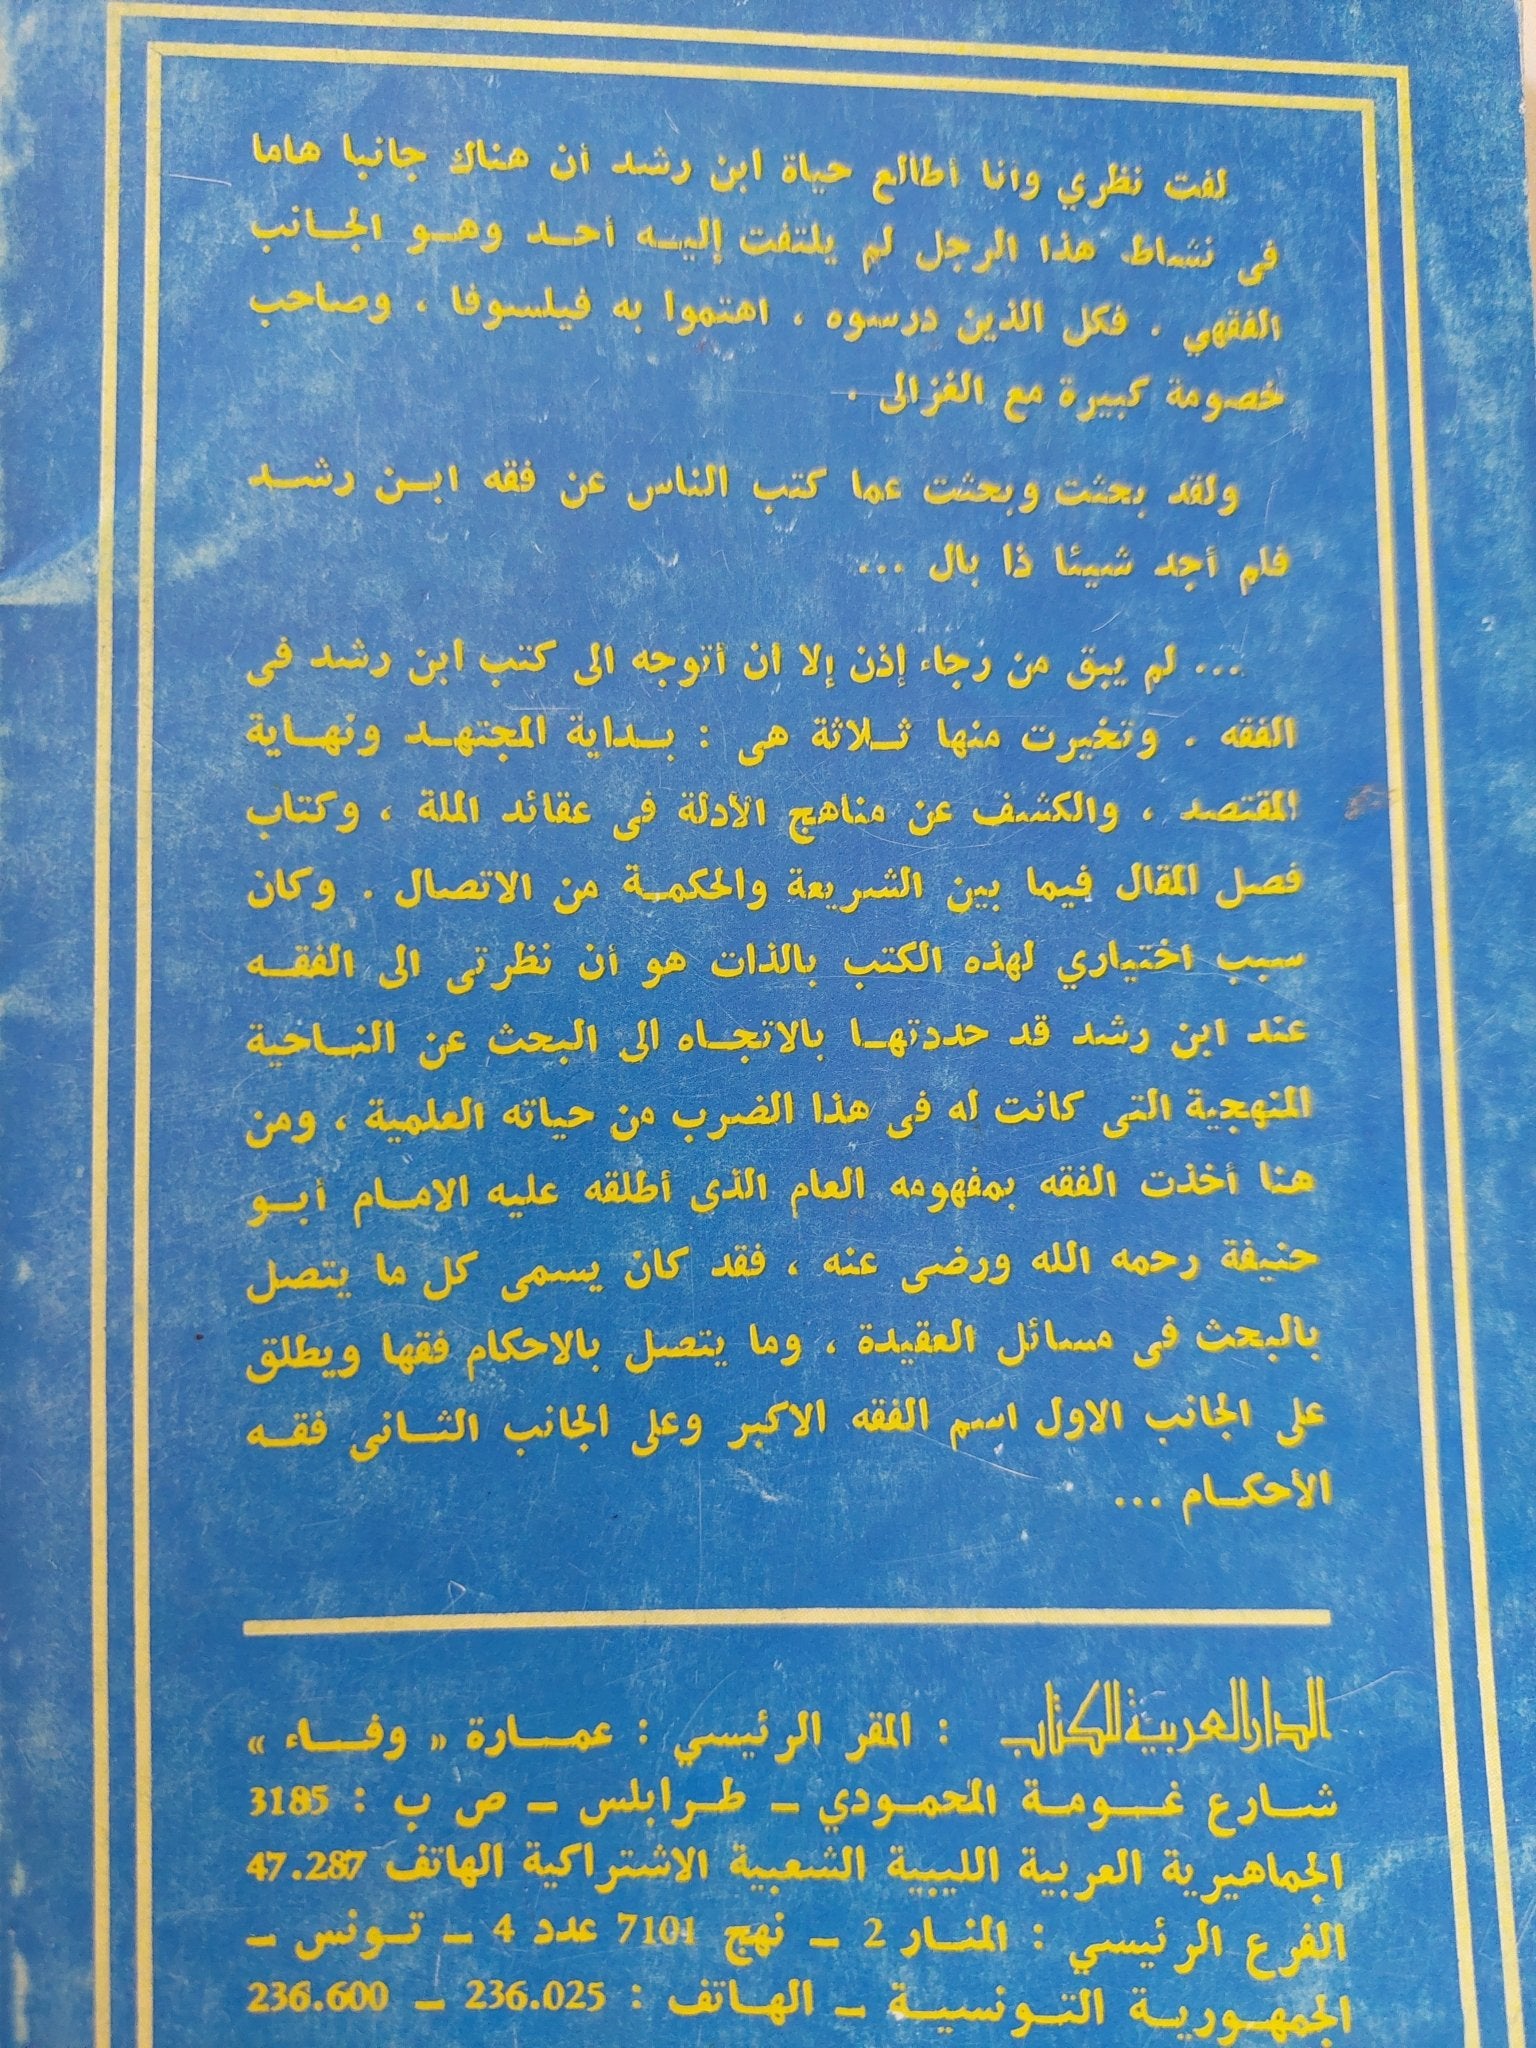 لفت نظري وأنا أطالع حياة ابن رشد أن هناك جانبا هاما
فى نشاط هذا الرجل لم يلتفت إليه أحد وهو الجانب
الفقهي . فكل الذين درسوه ، اهتموا به فيلسوفا ، وصاحب
خصومة كبيرة مع الغزالى .
ولقد بحثت وبحثت عما كتب الناس عن فقه ابن رشد
فلم أجد شيئا ذا بال ...
... لم يبق من رجاء إذن إلا ان أتوجه الى كتب ابن رشد فى
الفقه . وتخيرت منها ثلاثة هى : بداية المجتهد ونهاية
المقتصد ، والكشف عن مناهج الأدلة فى عقائد الملة ، وكتاب
فصل المقال فيما بين الشريعة والحكمة من الاتصال . وكان
سبب اختياري لهذه الكتب بالذات هو أن نظرتى الى الفقه
عند ابن رشد قد حددتها بالاتجاه الى البحث عن الناحية
المنهجية التى كانت له فى هذا الضرب من حياته العلمية ، ومن
هنا أخذت الفقه بمفهومه العام الذى أطلقه عليه الامام أبو
حنيفة رحمه الله ورضى عنه ، فقد كان يسمى كل ما يتصل
بالبحث فى مسائل العقيدة ، وما يتصل بالاحكام فقها ويطلق
على الجانب الاول اسم الفقه الاكبر وعلى الجانب الثانى فقه
الأحكام ...
الدار العربية للكتاب : المقر الرئيسي : عمارة « وفاء »
شارع غومة المحمودي - طرابلس - ص ب : 3185
الجماهيرية العربية الليبية الشعبية الاشتراكية الهاتف 47.287
الفرع الرئيسي : المنار 2 - نهج 7101 عدد 4 - تونس -
الجمهورية التونسية - الهاتف : 236.025 - 236.600